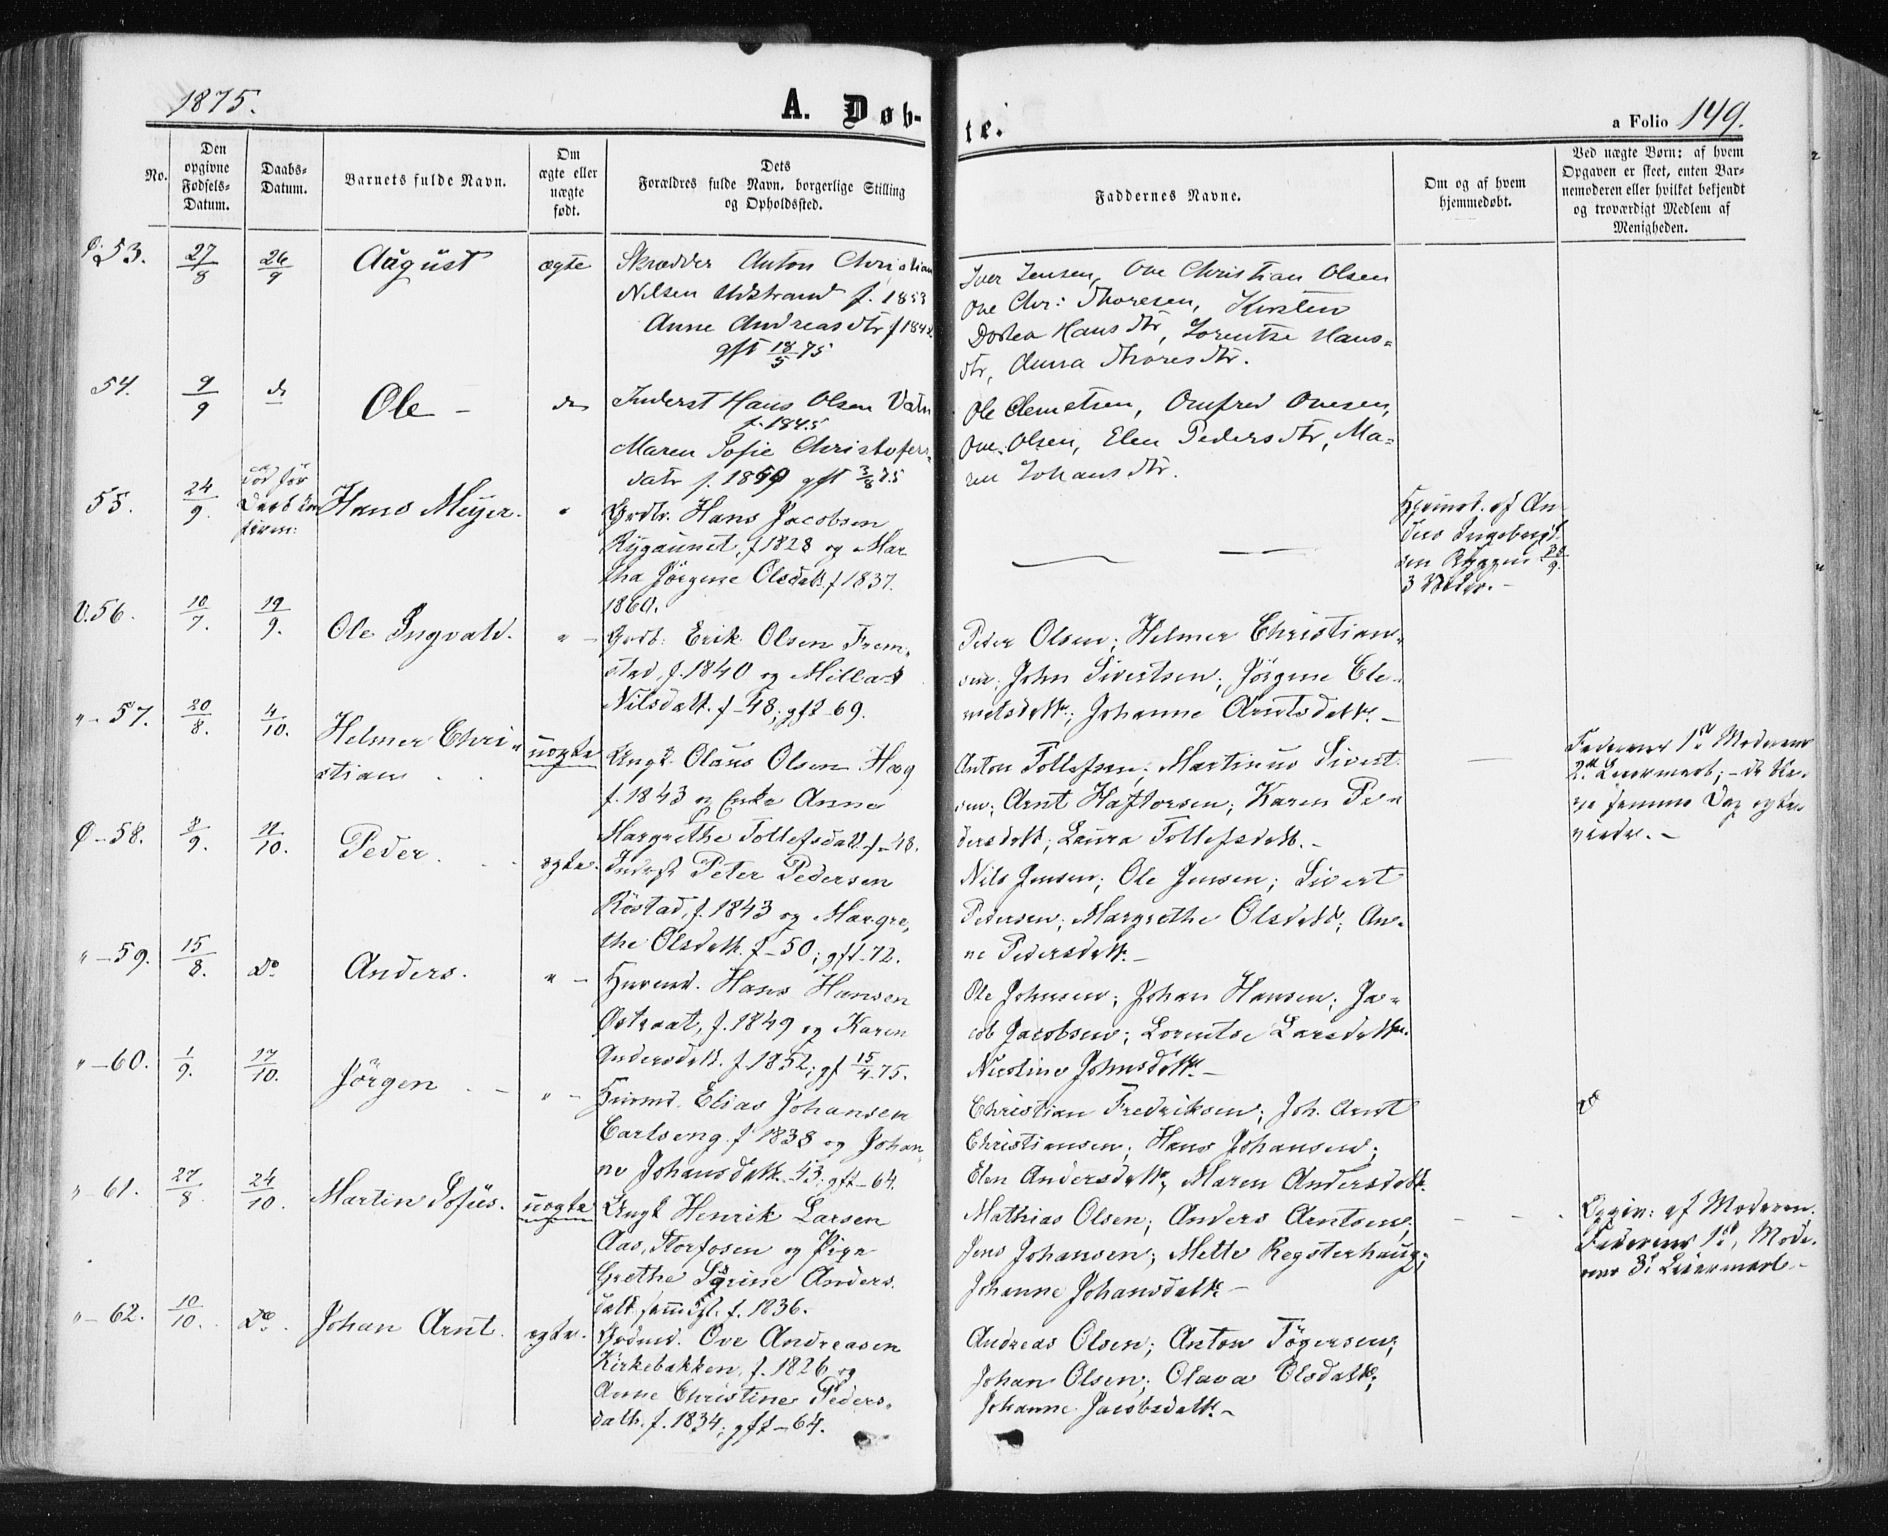 1875.
A. Døb-
te.
a Folio 149.
No.
Den
opgivne
Fødsels-
Datum.
Daabs-
Datum.
Barnets fulde Navn.
Om
ægte eller
uægte
født.
Dets
Forældres fulde Navn, borgerlige Stilling
og Opholdssted.
Faddernes Navne.
Om og af hvem
hjemmedøbt.
Ved uægte Børn: af hvem
Opgaven er skeet, enten Bar-
nemoderen eller hvilket bekjendt
og troværdigt Medlem af
Menigheden.
53. 27/8 26/9 August ægte
Skrædder Anton Christian
Nilsen Udstrand f. 1853
Anne Andreasdtr f 184
gft 18/5 75
Iver Jensen, Ove Christian Olsen
Ove Chr: Thoresen, Kirsten
Dortea Hansdtr, Lorentse Hans-
dtr, Anna Thoresdtr.
54. 9/9 do Ole - do
Inderst Hans Olsen Vatn
f. 1845
Maren Sofie Christofers-
datr f. 1859 gft 3/8 75
Ole Clemetsen, Onfred Ovesen,
Ove Olsen, Elen Pedersdtr, Ma-
ren Johansdtr.
55. 24/9. død før
Daab
Hans Meyer.
Grdbr. Hans Jacobsen
Rygaunet, f 1828 og Mar
tha Jørgine Olsdatt. f 1837.
1860.
Hjemmd. af An-
ders Ingebrigt-
sen Ryggen 28/9.
3 Uger. -
V. 56. 10/7. 19/9. Ole Ingvald. " -
Grdb: Erik Olsen Frem-
stad, f. 1840 og Milla
Nilsdatt. f - 48; gft - 69.
Peder Olsen; Helmer Christian-
sen; John Sivertsen; Jørgine Cle-
metsdatt; Johanne Arntsdatt. -
" - 57. 20/8. 4/10. Helmer Chri-
stian . . uægte
Ungk. Olaus Olsen Høg
f. 1843 og Enke Anne
Margrethe Tollefsdatt f - 48.
Anton Tollefsen; Martinus Sivert
sen; Arnt Haftorsen; Karen Pe-
dersdatt; Laura Tollefsdatt. -
Faderens 1ste Moderens
2det Leiermaal; -
samme Dag
O - 58. 8/9. 11/10. Peder . . - ægte.
Inderst Peter Pedersen
Røstad, f. 1843 og Margre-
the Olsdatt. f - 50; gft - 72.
Nils Jensen; Ole Jensen; Sivert
Pedersen; Margrethe Olsdatt; An-
ne Pedersdatt. -
" - 59. 15/8. do Anders. " -
Huusmd. Hans Hansen
Østraat, f. 1849 og Karen
Andersdatt. f. 1852; gf 15/4 75.
Ole Johnsen; Johan Hansen; Ja-
cob Jacobsen; Lorentse Larsdatt.
Nicoline Johnsdatt. -
" - 60. 1/9. 17/10. Jørgen - - " -
Huusmd. Elias Johansen
Carlseng. f 1838 og Johan-
ne Johansdatt - 43; gft - 64.
Christian Fredriksen; Joh. Arnt
Christiansen; Hans Johansen;
Elen Andersdatt; Maren Andersdatt.
" - 61. 27/8. 24/10. Martin Sofus. uægte
Ungk Henrik Larsen
Aas, Storfosen og Pige
Grethe Sørine Anders.
datt. f. 1836.
Mathias Olsen; Anders Arntsen,
Jens Johansen; Mette Regsterhaug;
Johanne Johansdatt. -
Opgiv: af Moderen.
Faderens 1ste, Mode-
rens 3die Leiermaal. -
" - 62. 10/10. Do. Johan Arnt. ægte.
Grdmd. Ove Andreasen
Kirkebakken, f. 1826 og
Anne Christine Peders-
datt. f. 1834; gft - 64.
Andreas Olsen; Anton Tøgersen;
Johan Olsen; Olava Olsdatt;
Johanne Jacobsdatt. -